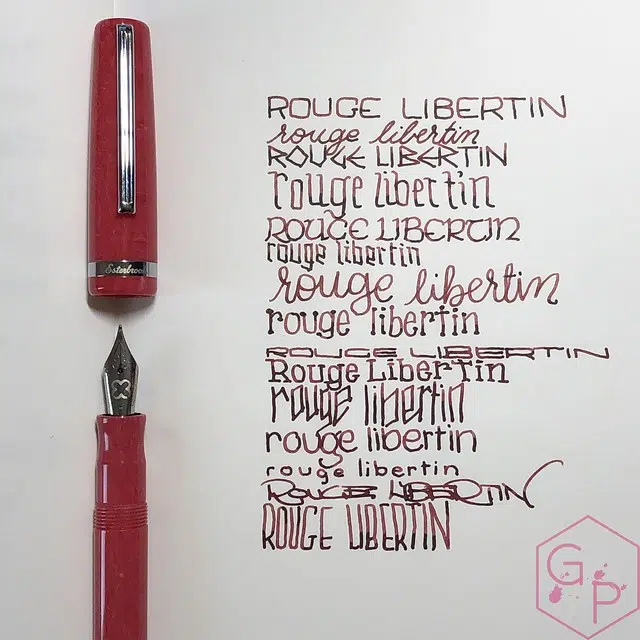 ROUGE LIBERTIN
rouge libertin
ROUGE LIBERTIN
rouge libertin
ROUGE LIBERTIN
rouge libertin
rouge libertin
rouge libertin
ROUGE LIBERTIN
Rouge Libertin
rouge libertin
rouge libertin
rouge libertin
ROUGE LIBERTIN
ROUGE LIBERTIN
Esterbrook
G P